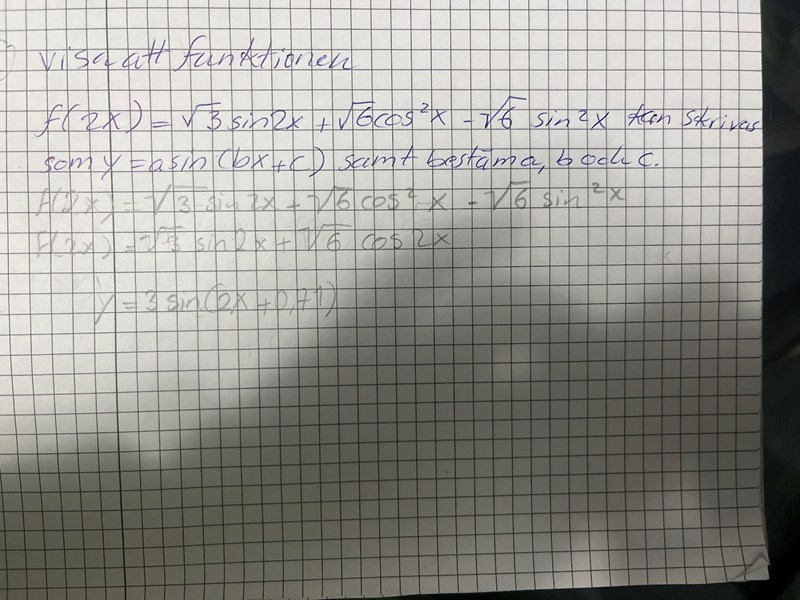 visa att funktionen
f(2x) = √3 sin2x + √6 cos²x - √6 sin²x kan skrivas
som y = a sin (bx+c) samt bestäma, b och c.
f(2x) = √3 sin 2x + √6 cos² x - √6 sin²x
f(2x) = √3 sin 2x + √6 cos 2x
y = 3 sin(2x + 0,71)